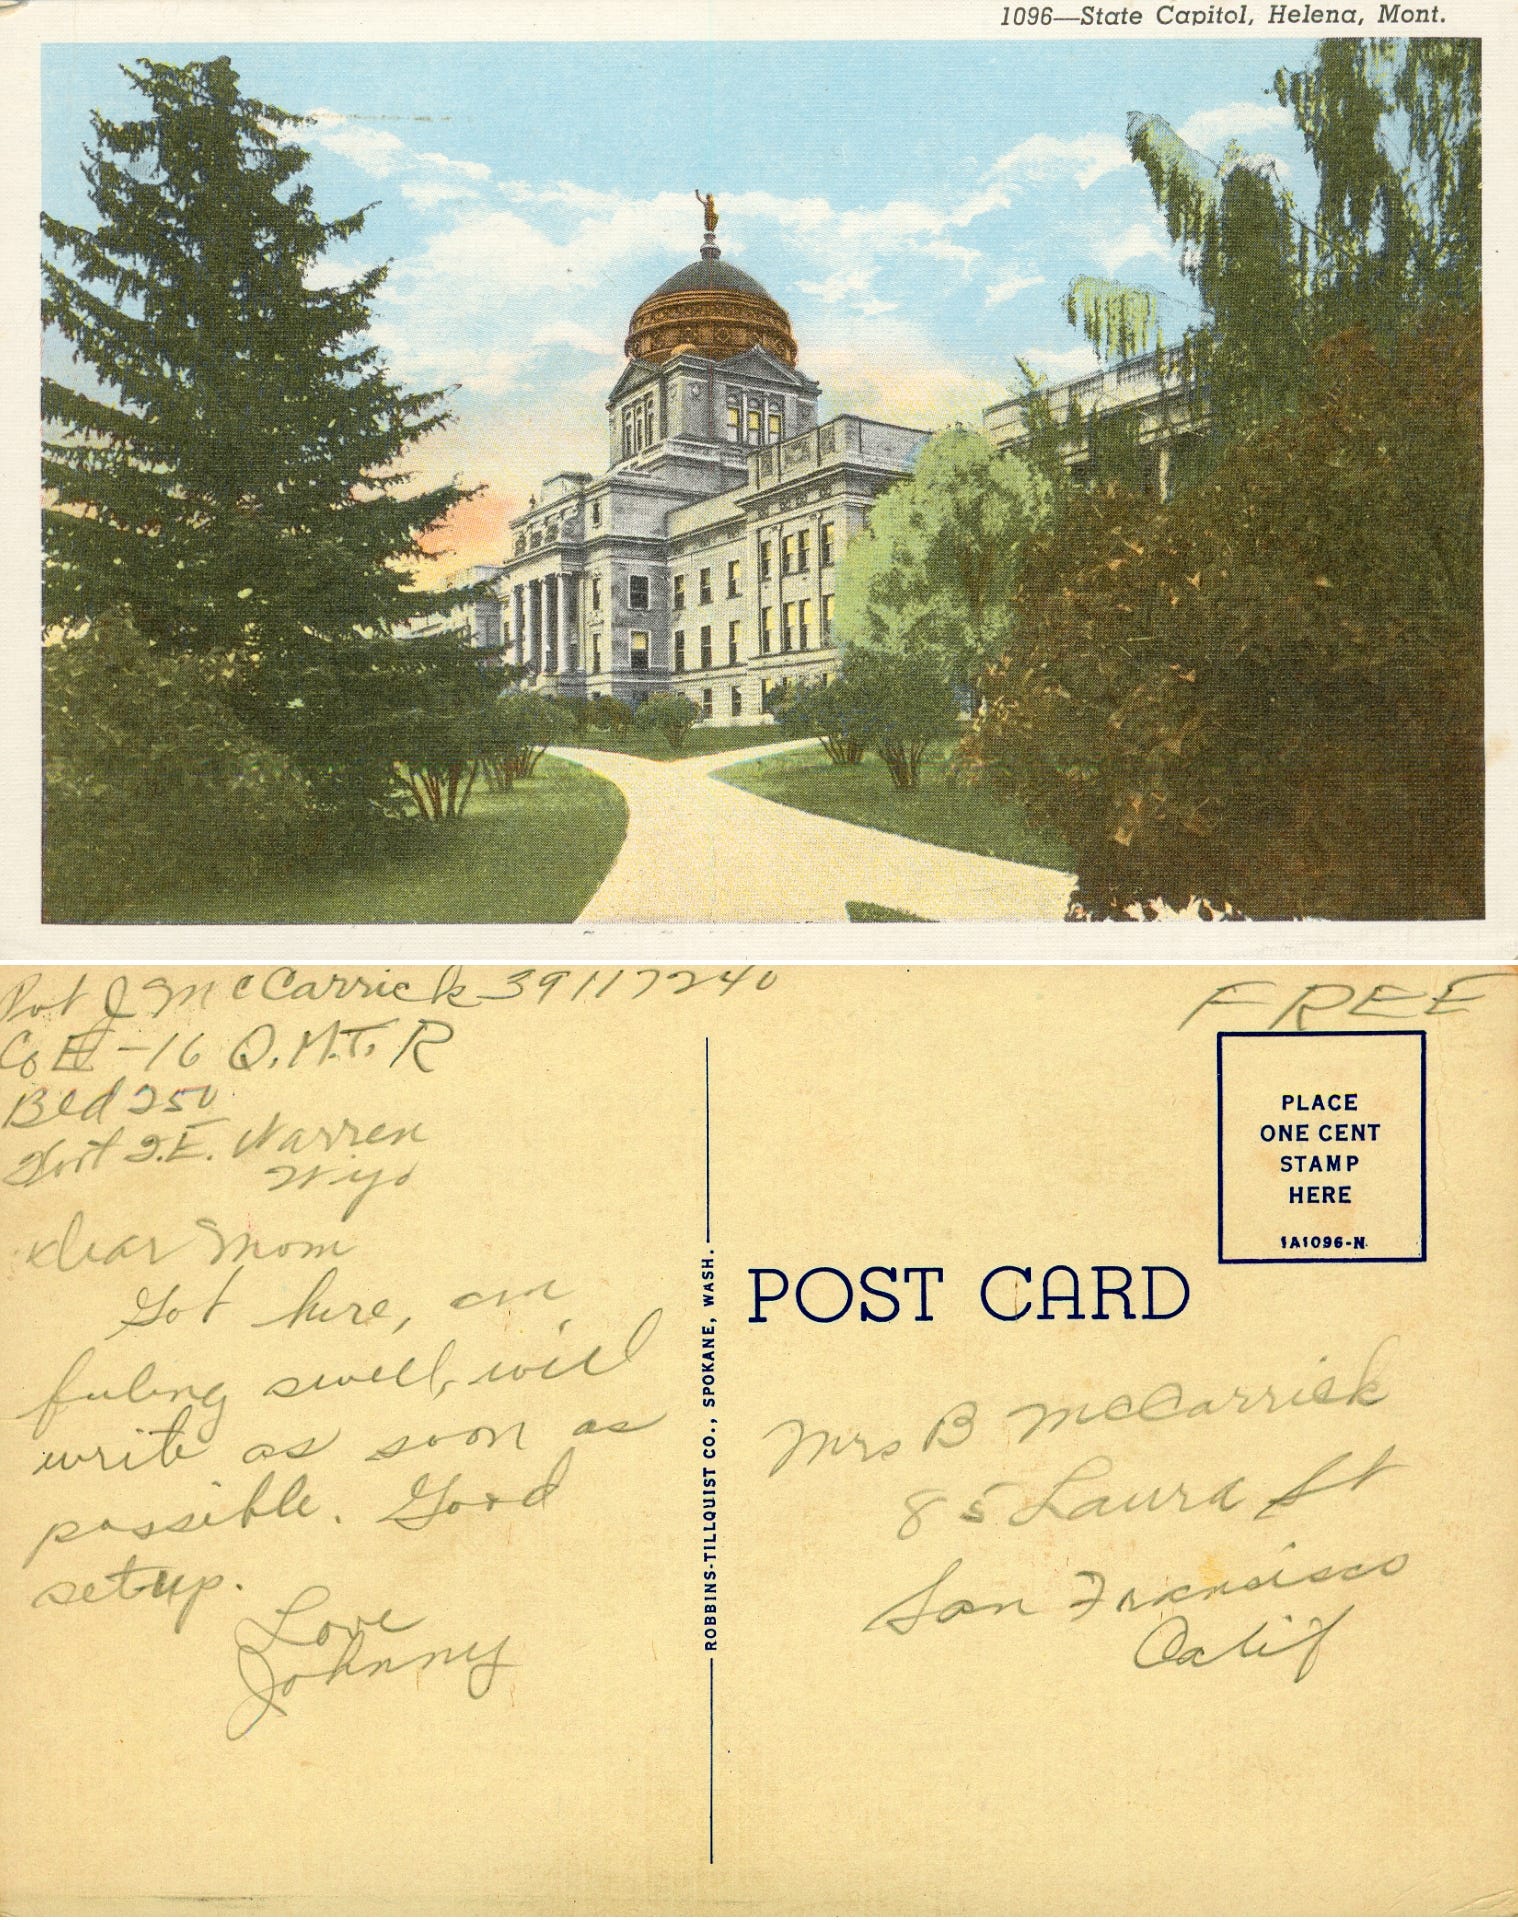 1096—State Capitol, Helena, Mont.
Pvt J McCarrick 39117240
Co E - 16 Q.M.T. R
Bld 250
Fort F.E. Warren
Wyo
Dear Mom
Got here, am
feeling swell, will
write as soon as
possible. Good
setup.
Love
Johnny
ROBBINS-TILLQUIST CO., SPOKANE, WASH.
FREE
PLACE
ONE CENT
STAMP
HERE
1A1096-N
POST CARD
Mrs B McCarrick
85 Laura St
San Francisco
Calif